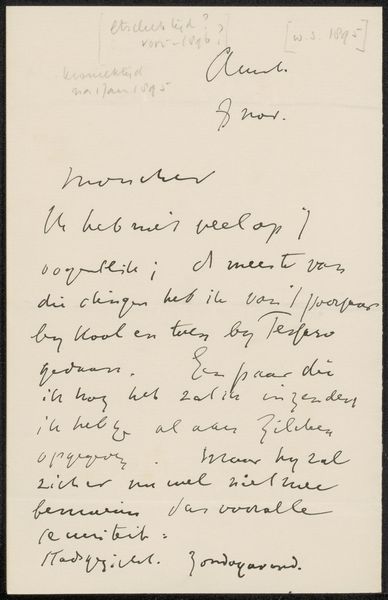 [etscherstijd?
voor 1896?]
[w.s. 1895]
na 1 jan 1895
Amst.
8 nov.
mon cher
Ik heb niet veel op 't
oogenblik; d meeste van
die dingen heb ik van 't voorjaar
by Kool en toen by Tersteeg
gedaan. Een paar die
ik nog heb zal ik inzenden
ik heb ze al aan Zilcken
opgegeven. Maar hy zal
zich er nu wel niet mee
bemoeien das voor alle
securiteit:
Stadsgezicht. Zondagavond.